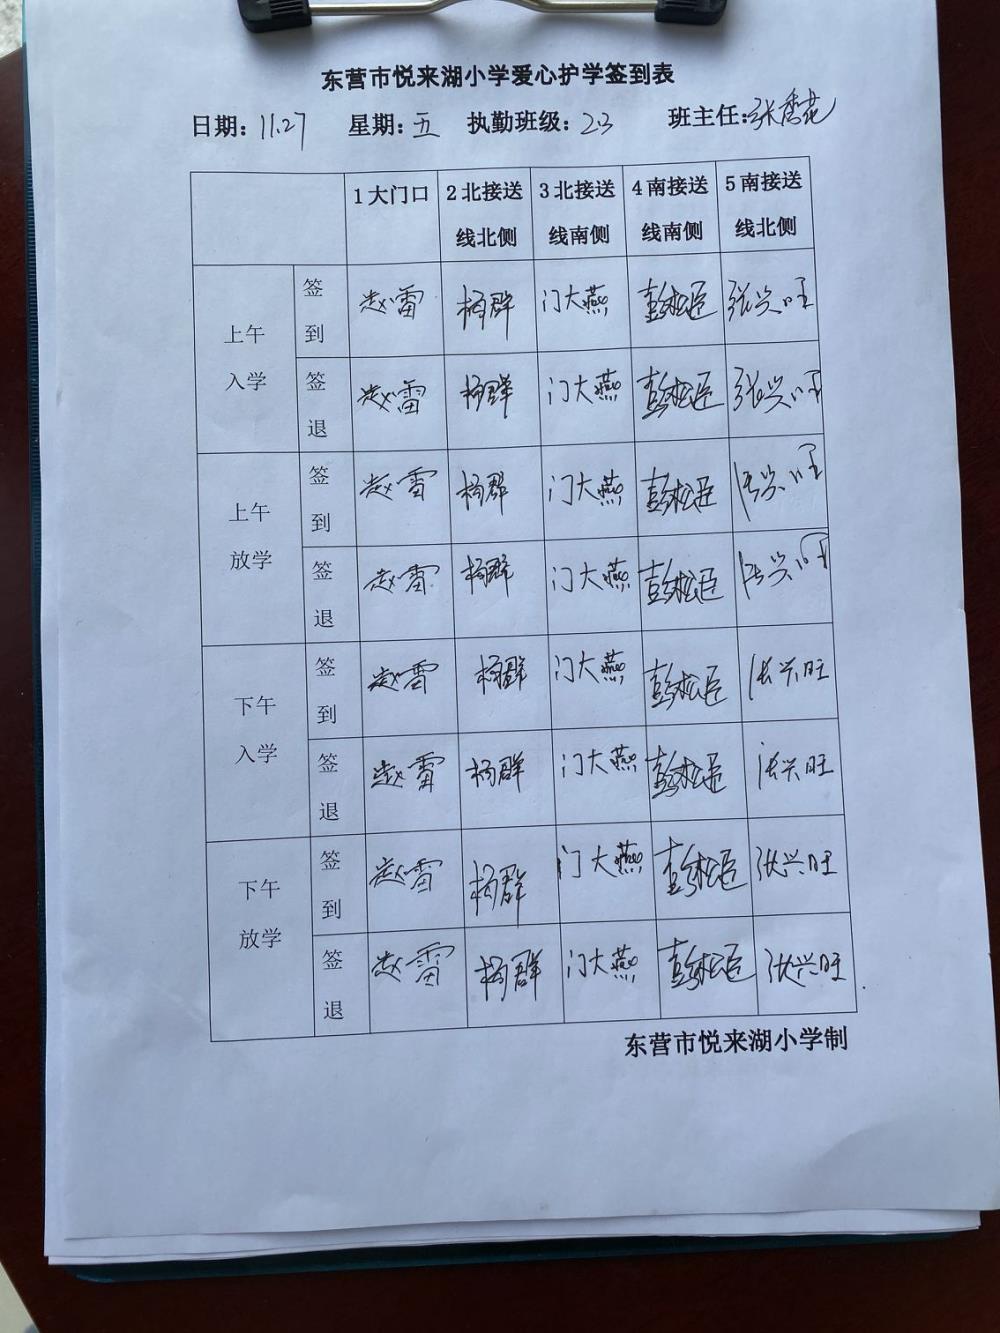 东营市悦来湖小学爱心护学签到表
日期：11.27 星期：五 执勤班级：2.3 班主任：张秀花
1大门口 2北接送线北侧 3北接送线南侧 4南接送线南侧 5南接送线北侧
上午入学 签到 赵雷 杨群 门大燕 彭松臣 张兴旺
签退 赵雷 杨群 门大燕 彭松臣 张兴旺
上午放学 签到 赵雷 杨群 门大燕 彭松臣 张兴旺
签退 赵雷 杨群 门大燕 彭松臣 张兴旺
下午入学 签到 赵雷 杨群 门大燕 彭松臣 张兴旺
签退 赵雷 杨群 门大燕 彭松臣 张兴旺
下午放学 签到 赵雷 杨群 门大燕 彭松臣 张兴旺
签退 赵雷 杨群 门大燕 彭松臣 张兴旺
东营市悦来湖小学制